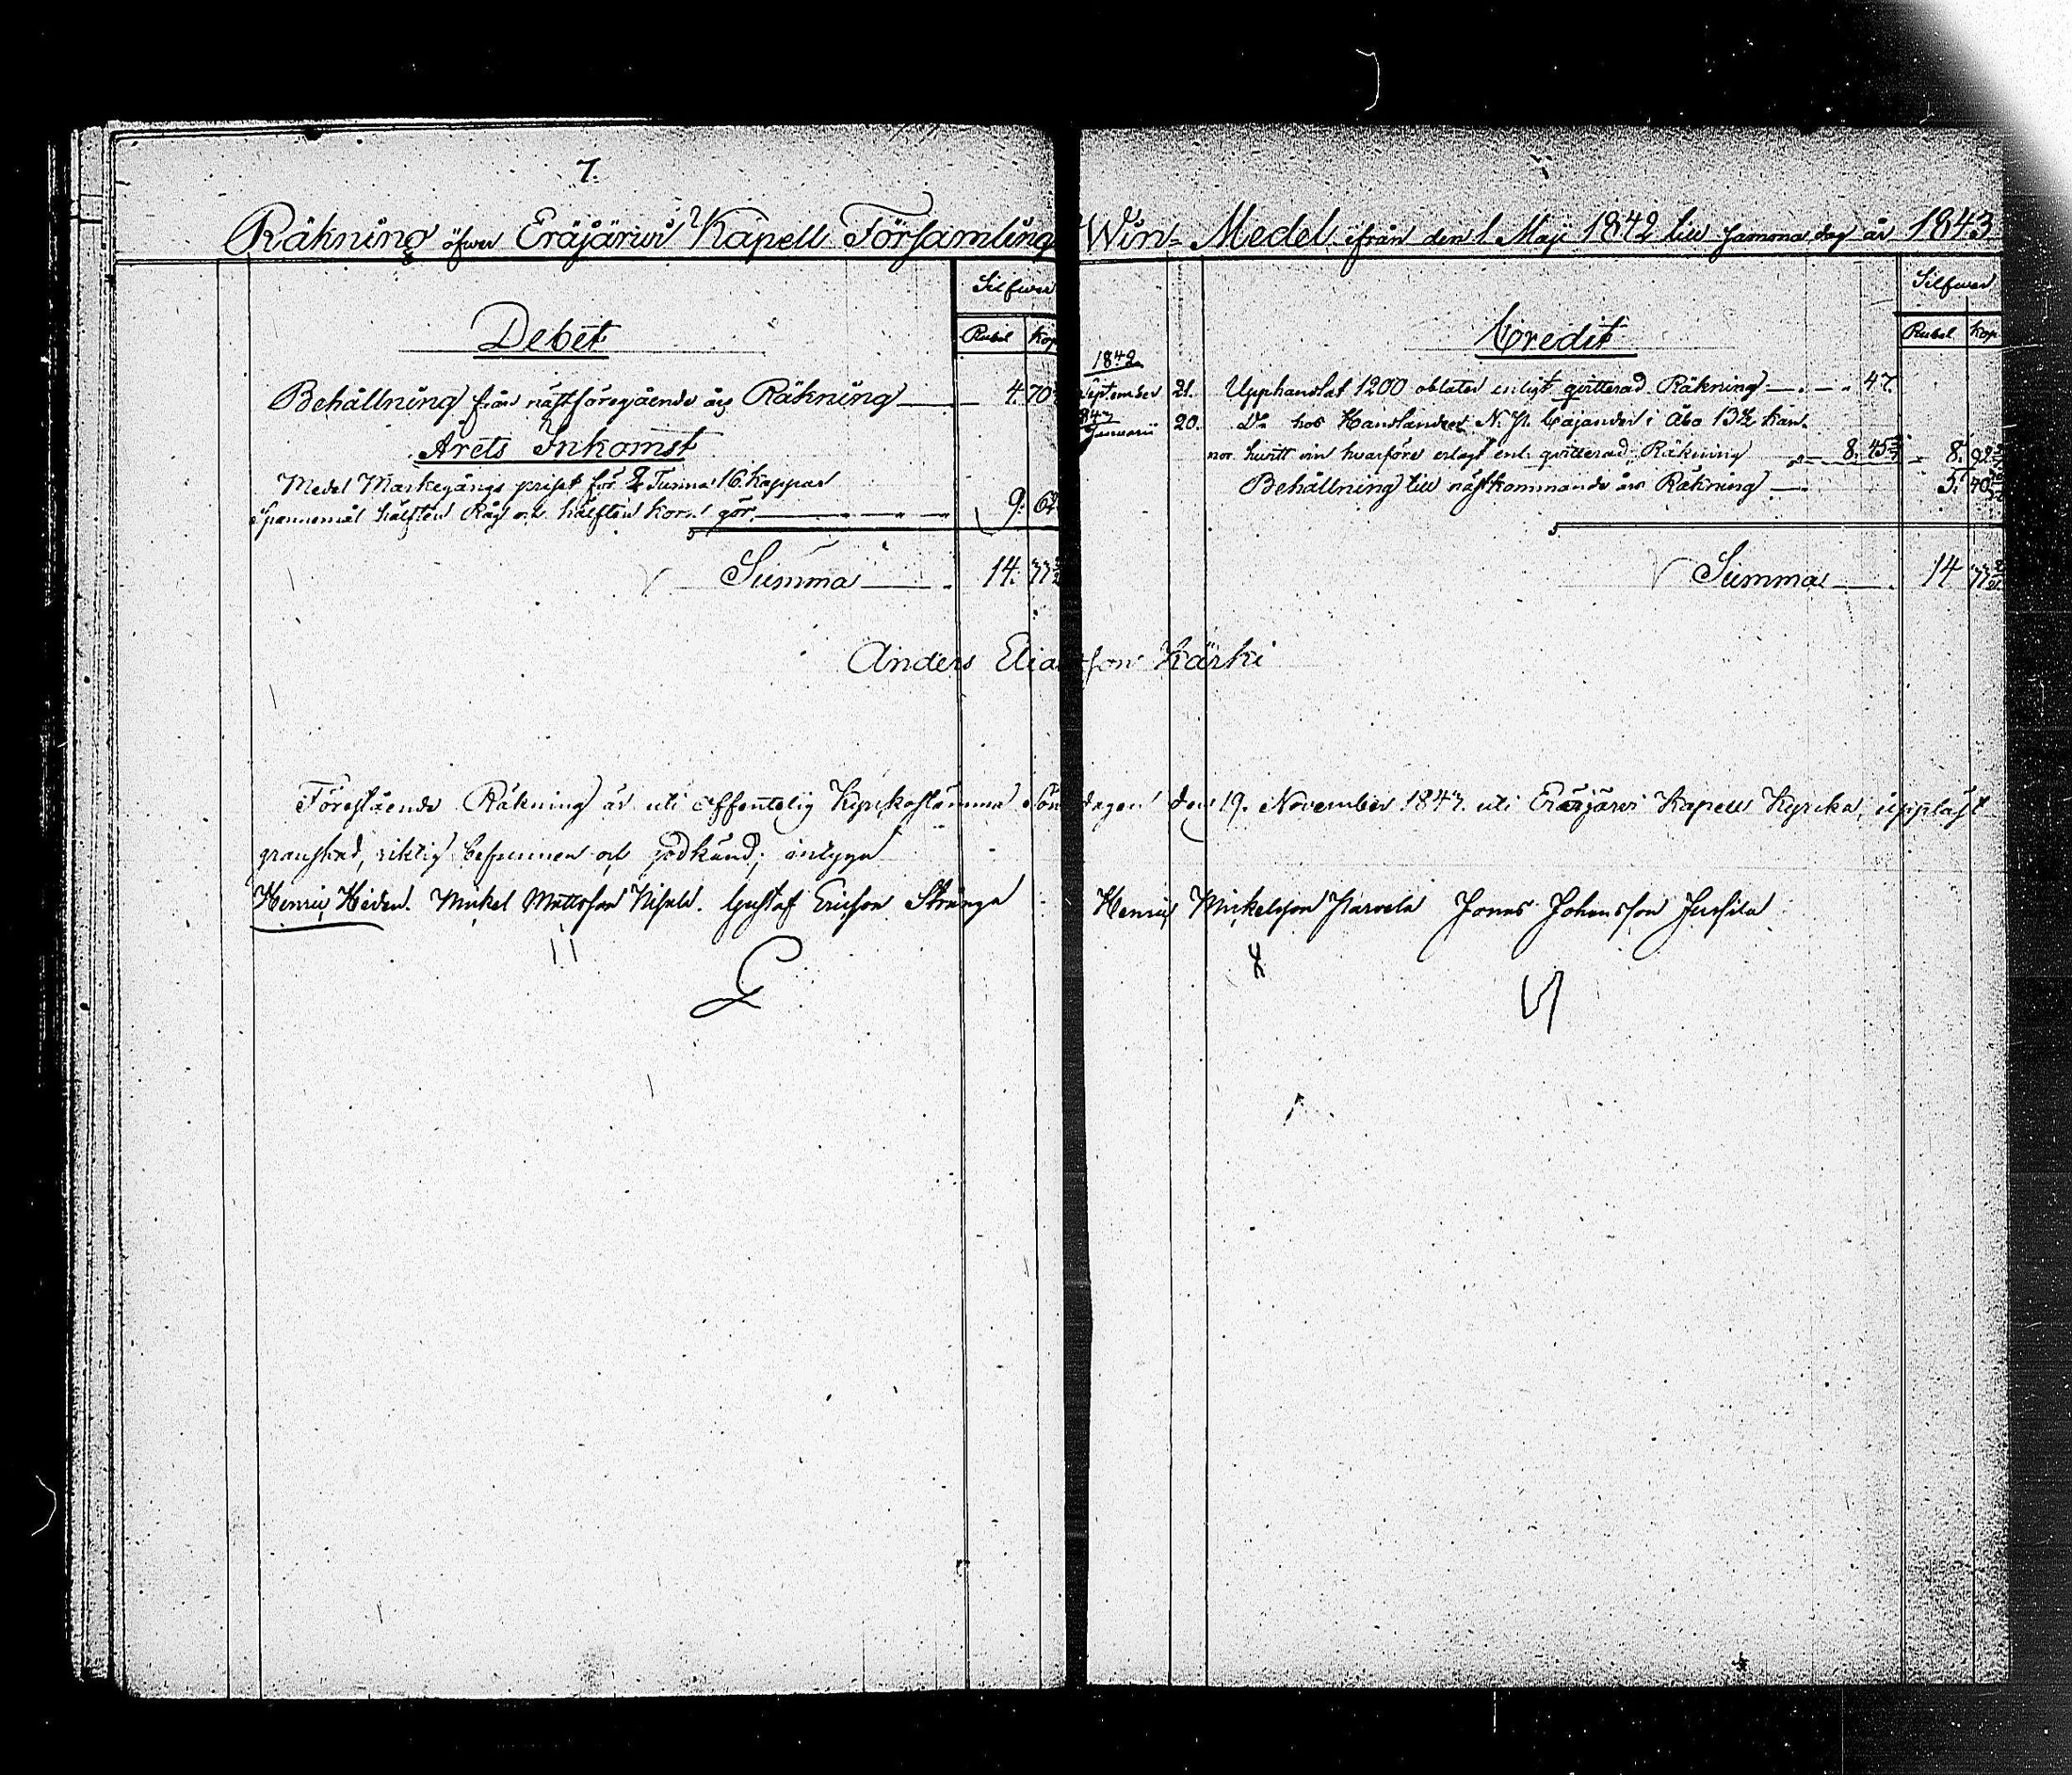 7.
Räkning öfwer Eräjärwi Kapell Församlings Win- Medel ifrån den 1 Maji 1842 till samma dag år 1843
Silfwer
Debet
Rubel Kop
Behållning från nästföregående års Räkning 4. 70
Årets Inkomst
Medel Markegångs priset för 2 Tunna 16 Kappar
Spannemål hälften Råg och hälften Korn gör 9. 62
Summa 14. 77
Silfwer
Credit
Rubel Kop
1842
September 21. Upphandlat 1200 oblater enligt qvitterad Räkning 47.
1843
Januarii 20. Do hos Handlanden Cajander i Åbo 13½ Kan-
nor hvitt vin hvarföre erlagt enl. qvitterad Räkning 8. 45 8. 92
Behållning till nästkommande års Räkning 5.
Summa 14 77
Anders Eliasson Kärki
Förestående Räkning är uti offentelig Kyrkostämma Söndagen den 19. November 1843. uti Eräjärvi Kapell Kyrka, uppläst
granskad, riktig befunnen och godkänd; intyga
Henric Heden. Mickel Mattsson Gustaf Ericsson Henric Mickelsson Jonas Johansson Jussila